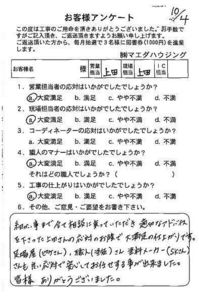 10/4
お客様アンケート
この度は工事のご用命を頂きありがとうございました。お手数で
すがご記入頂き、ご返送頂きますようお願い申し上げます。
ご返送頂いた方から、毎月抽選で3名様に図書券(1000円)を進呈
します。
㈱マエダハウジング
お客様名 様 営業担当 上田 現場担当 上田 IC担当
1. 営業担当者の応対はいかがでしたでしょうか？
a.大変満足 b.満足 c.やや不満 d.不満
2. 現場担当者の応対はいかがでしたでしょうか？
a.大変満足 b.満足 c.やや不満 d.不満
3. コーディネーターの応対はいかがでしたでしょうか？
a.大変満足 b.満足 c.やや不満 d.不満
4. 職人のマナーはいかがでしたでしょうか？
a.大変満足 b.満足 c.やや不満 d.不満
それはどの職人でしょう( )
5. 工事の仕上がりはいかがでしたでしょうか？
a.大変満足 b.満足 c.やや不満 d.不満
6. その他、ご意見・ご要望をお書き下さい。
細かい事まで全て相談に乗っていただき 適切なアドバイス
を下さった上田さんの応対のお陰で 大満足の仕上がりです。
さんも 良い応対で安心してお任せする事が出来ました。
皆様 ありがとうございました。